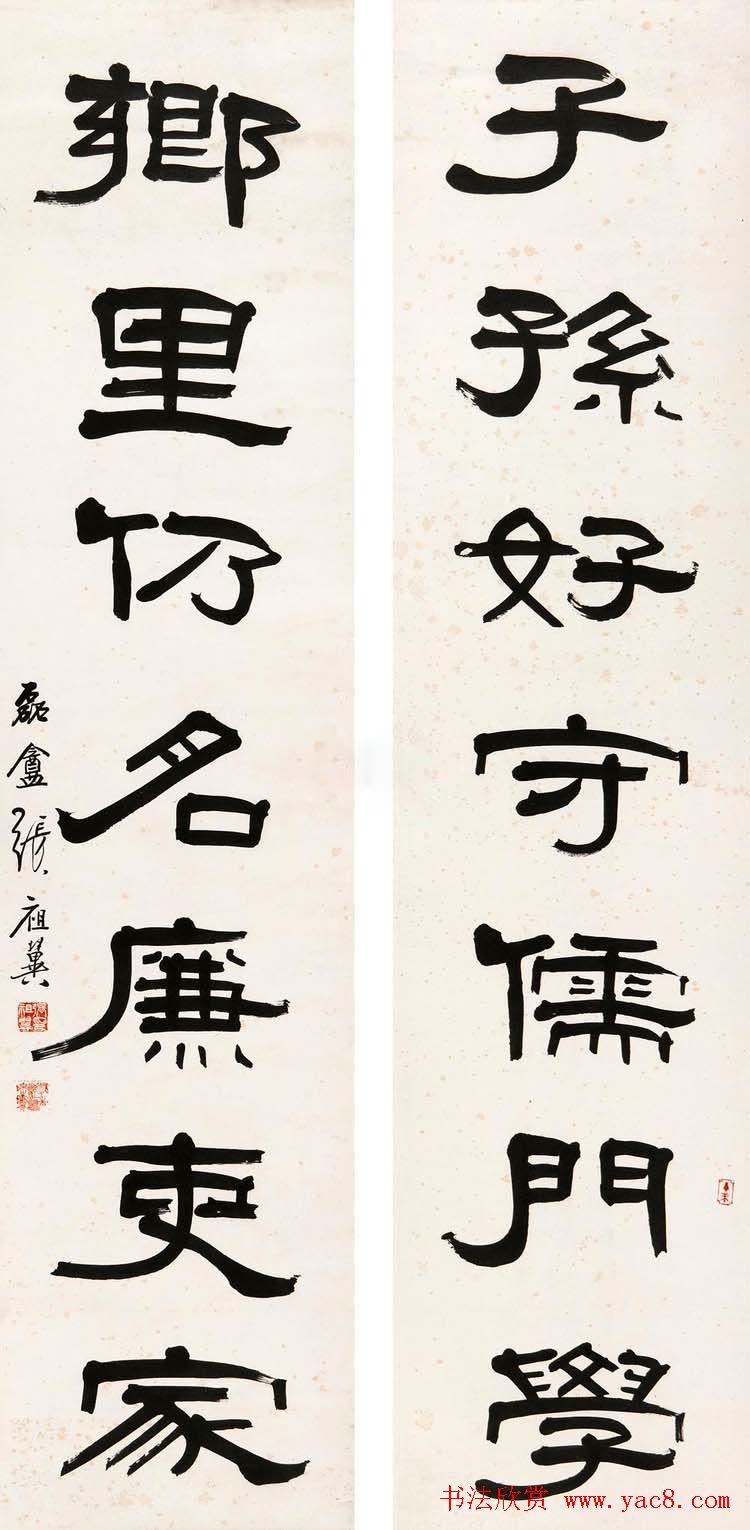 子孫好守儒門學
鄉里仍名廉吏家
磊盦張祖翼
书法欣赏 www.yac8.com